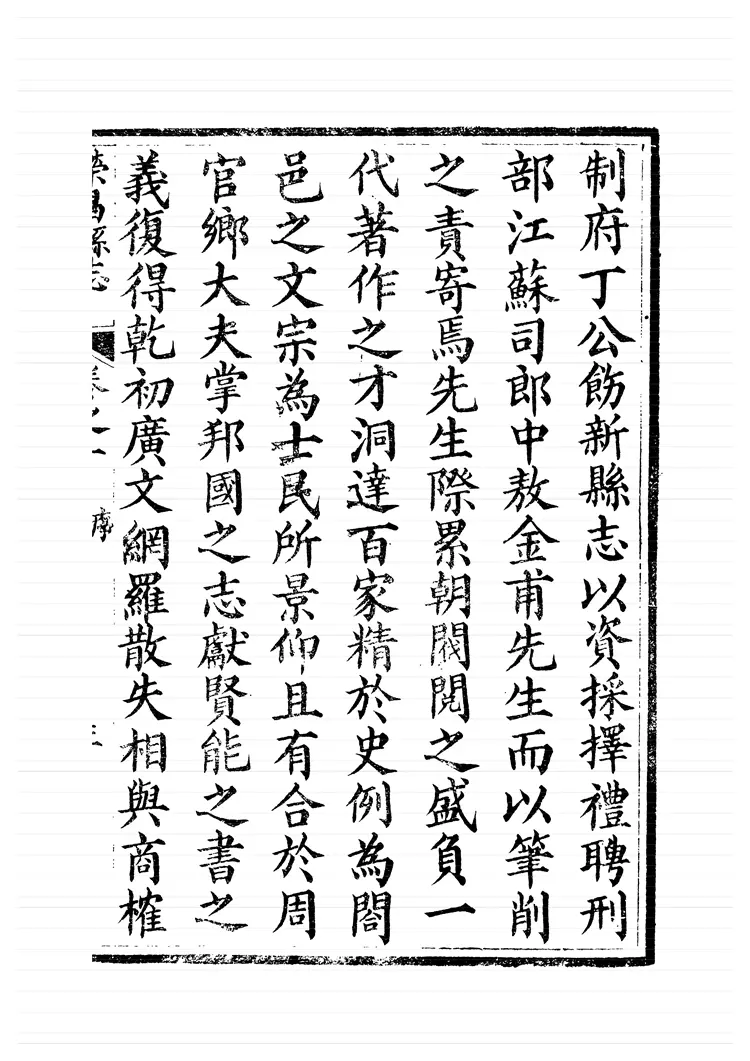 制府丁公飭新縣志以資採擇禮聘刑
部江蘇司郎中敖金甫先生而以筆削
之責寄焉先生際累朝閥閱之盛負一
代著作之才洞達百家精於史例為閤
邑之文宗為士民所景仰且有合於周
官鄉大夫掌邦國之志獻賢能之書之
義復得乾初廣文網羅散失相與商榷
榮昌縣志 卷之一 序 三